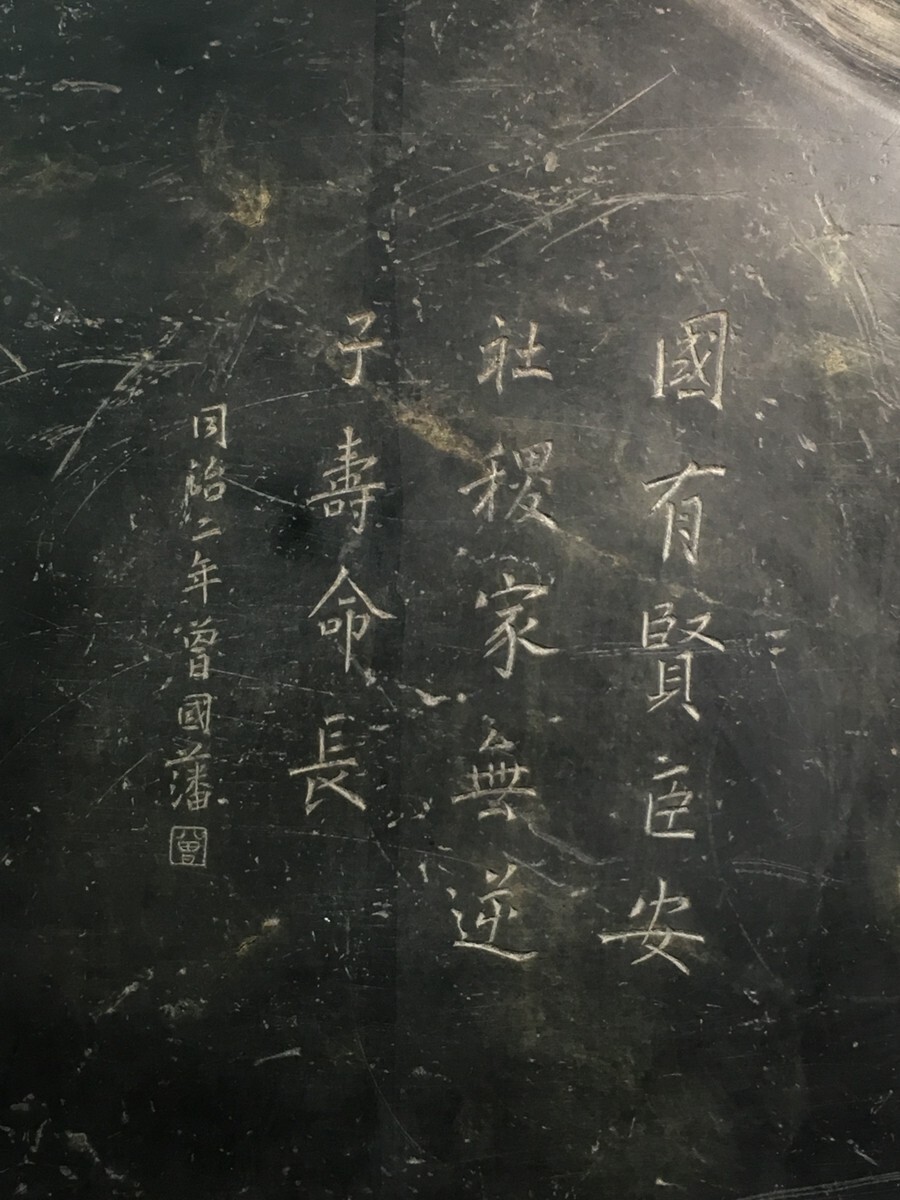 國有賢臣安
社稷家無逆
子壽命長
同治二年曾國藩
曾